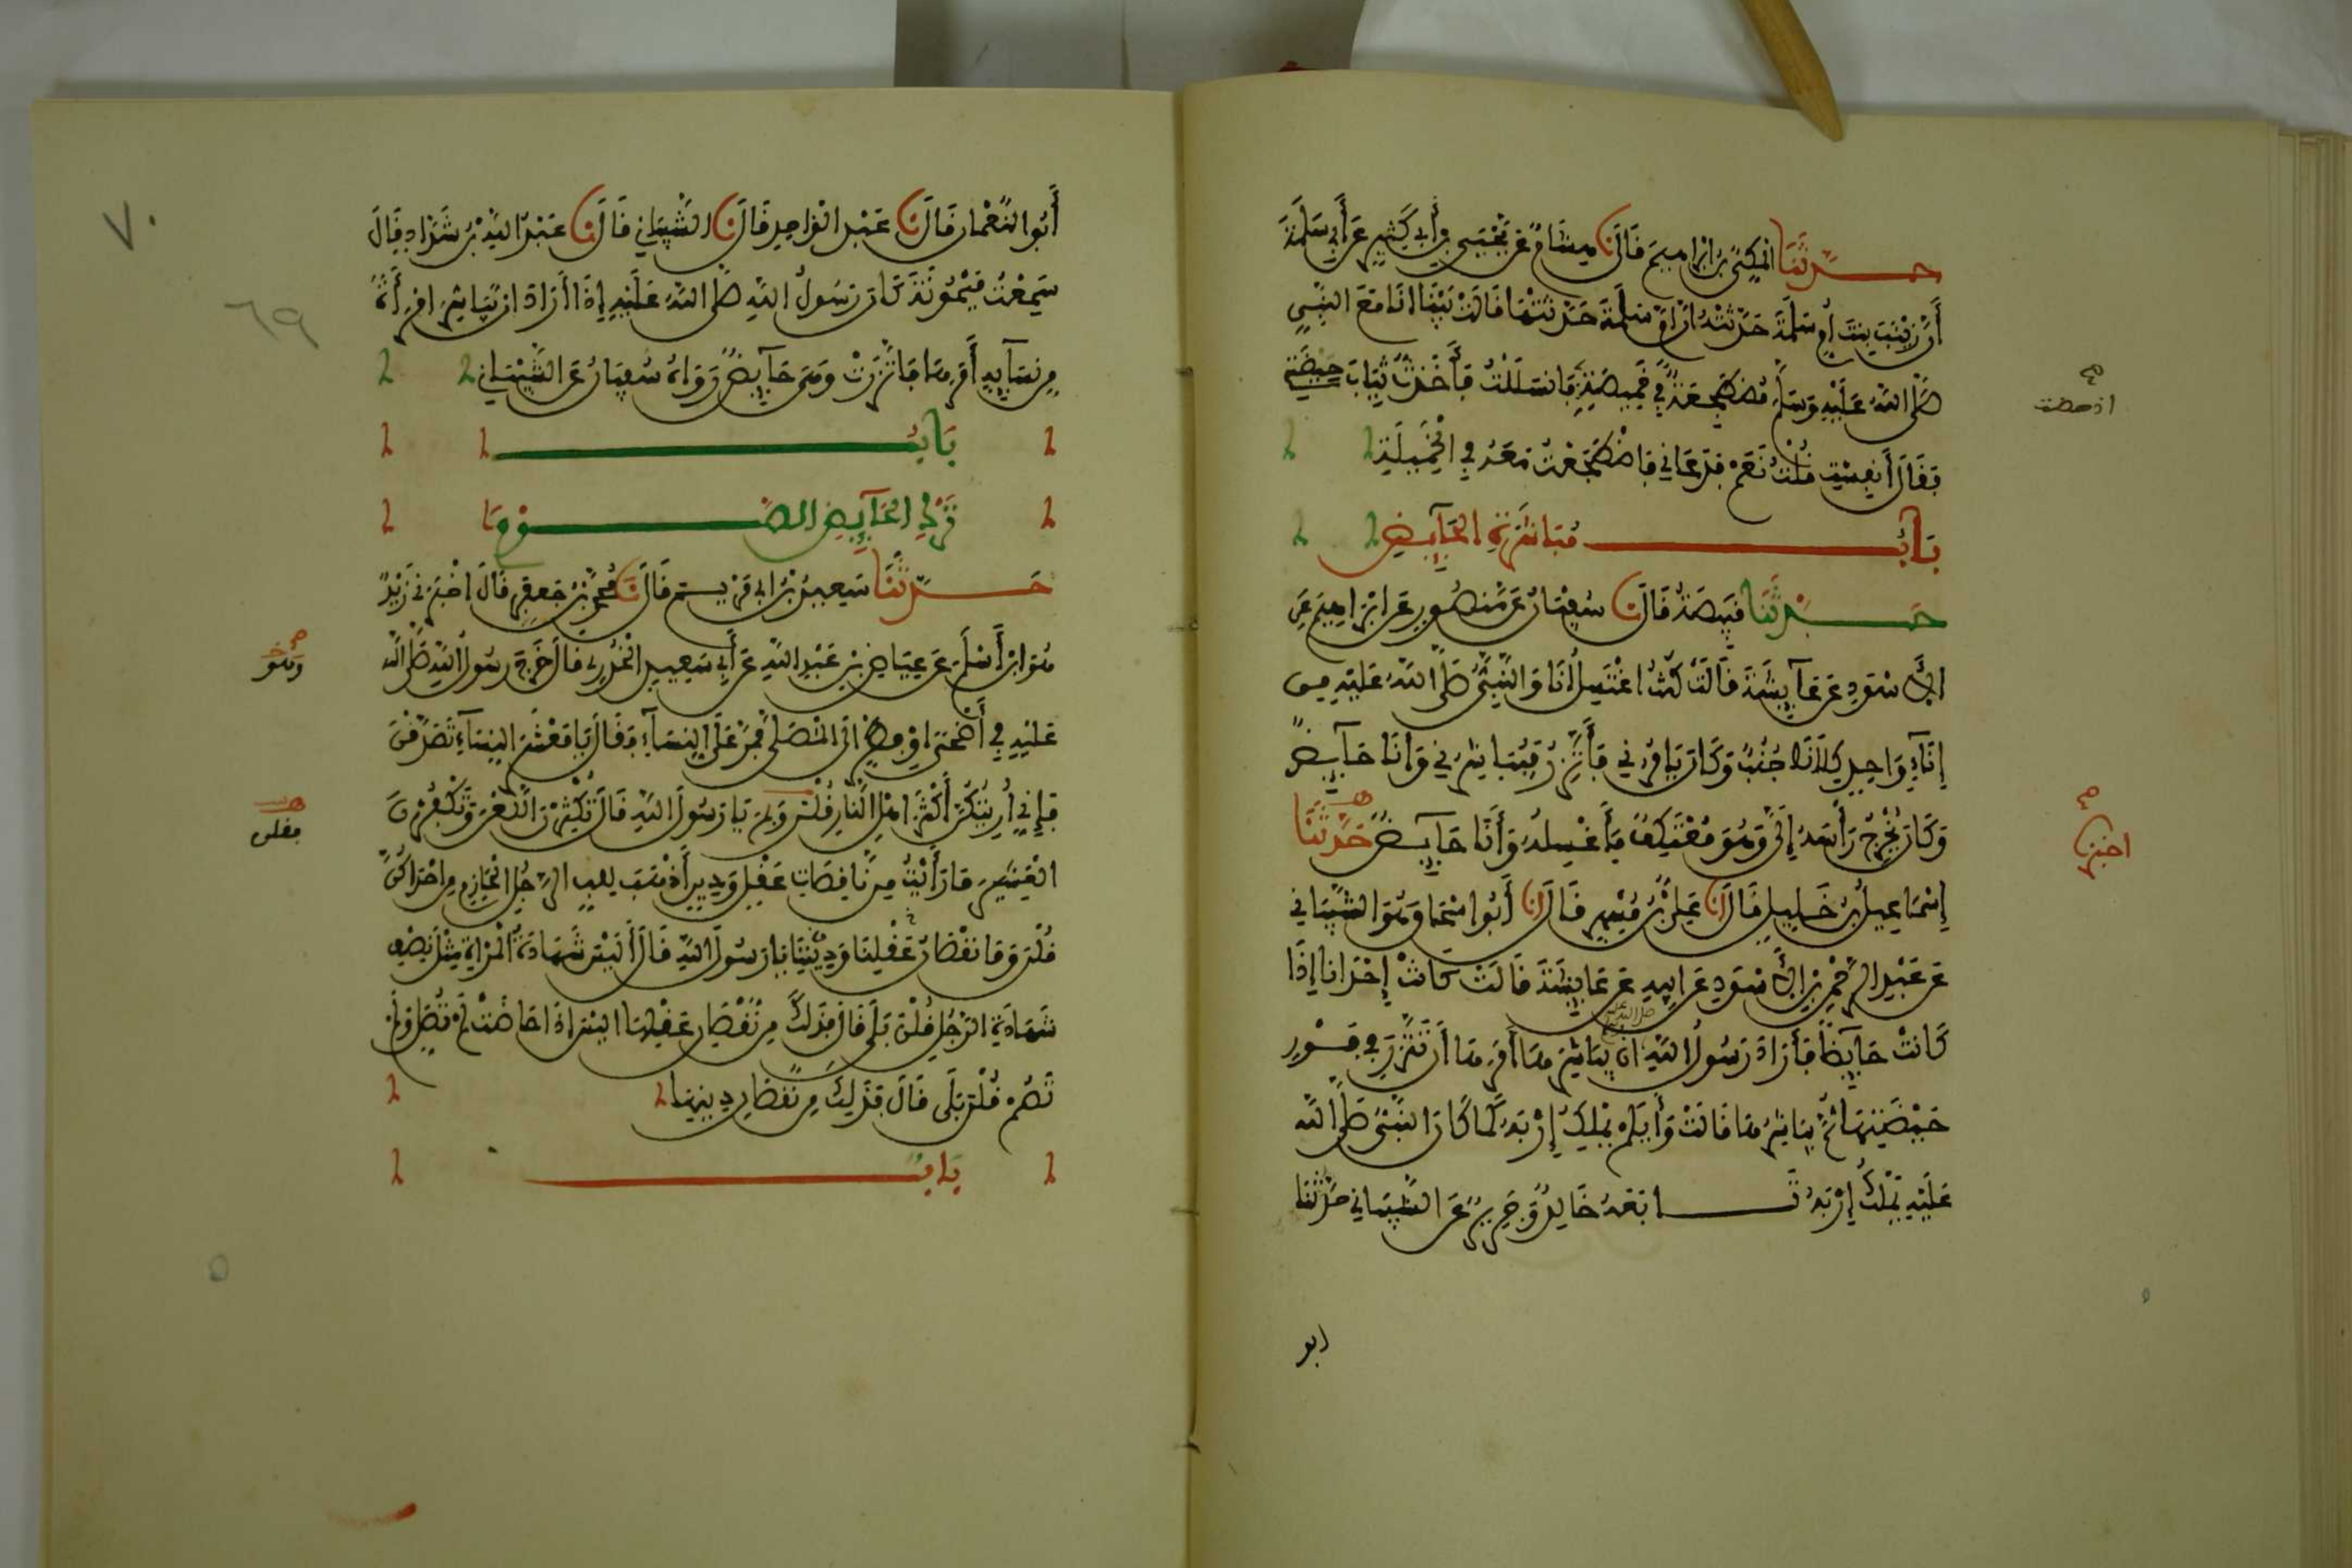 حَدَّثَنَا المَكِّيُّ بْنُ إِبْرَاهِيمَ قَالَ نا هِشَامٌ عَنْ يَحْيَى بْنِ أَبِي كَثِيرٍ عَنْ أَبِي سَلَمَةَ
أَنَّ زَيْنَبَ بِنْتَ أُمِّ سَلَمَةَ حَدَّثَتْهُ أَنَّ أُمَّ سَلَمَةَ حَدَّثَتْهَا قَالَتْ بَيْنَا أَنَا مَعَ النَّبِيِّ
صَلَّى اللَّهُ عَلَيْهِ وَسَلَّمَ مُضْطَجِعَةً فِي خَمِيصَةٍ فَانْسَلَلْتُ فَأَخَذْتُ ثِيَابَ حَيْضَتِي
اذ حضت
فَقَالَ أَنَفِسْتِ قُلْتُ نَعَمْ فَدَعَانِي فَاضْطَجَعْتُ مَعَهُ فِي الْخَمِيلَةِ
بَابُ مُبَاشَرَةِ الْحَائِضِ
حَدَّثَنَا قَبِيصَةُ قَالَ نا سُفْيَانُ عَنْ مَنْصُورٍ عَنْ إِبْرَاهِيمَ عَنِ
الأَسْوَدِ عَنْ عَائِشَةَ قَالَتْ كُنْتُ أَغْتَسِلُ أَنَا وَالنَّبِيُّ صَلَّى اللَّهُ عَلَيْهِ مِن
إِنَاءٍ وَاحِدٍ كِلَانَا جُنُبٌ وَكَانَ يَأْمُرُنِي فَأَتَّزِرُ فَيُبَاشِرُنِي وَأَنَا حَائِضٌ
وَكَانَ يُخْرِجُ رَأْسَهُ إِلَيَّ وَهُوَ مُعْتَكِفٌ فَأَغْسِلُهُ وَأَنَا حَائِضٌ حَدَّثَنَا
اخبرنا
إِسْمَاعِيلُ بْنُ خَلِيلٍ قَالَ انا عَلِيُّ بْنُ مُسْهِرٍ قَالَ انا أَبُو إِسْحَاق وَهُوَ الشَّيْبَانِي
عَنْ عَبْدِ الرَّحْمٰنِ بْنِ الأَسْوَدِ عَنْ أَبِيهِ عَنْ عَائِشَةَ قَالَتْ كَانَتْ إِحْدَانَا إِذَا
كَانَتْ حَائِضًا فَأَرَادَ رَسُولُ اللَّهِ صلى الله عليه أَنْ يُبَاشِرَهَا أَمَرَهَا أَنْ تَتَّزِرَ فِي فَوْرِ
حَيْضَتِهَا ثُمَّ يُبَاشِرُهَا قَالَتْ وَأَيُّكُمْ يَمْلِكُ إِرْبَهُ كَمَا كَانَ النَّبِيُّ صَلَّى اللَّهُ
عَلَيْهِ يَمْلِكُ إِرْبَهُ تَابَعَهُ خَالِدٌ وَجَرِيرٌ عَنِ الشَّيْبَانِي حَدَّثَنَا
ابو
٧٠
٦٩
أَبُو النُّعْمَانِ قَالَ نا عَبْدُ الْوَاحِدِ قَالَ نا الشَّيْبَانِي قَالَ نا عَبْدُ اللَّهِ بْنُ شَدَّادٍ قَالَ
سَمِعْتُ مَيْمُونَةَ كَانَ رَسُولُ اللَّهِ صَلَّى اللَّهُ عَلَيْهِ إِذَا أَرَادَ أَنْ يُبَاشِرَ امْرَأَةً
مِنْ نِسَائِهِ أَمَرَهَا فَاتَّزَرَتْ وَهِيَ حَائِضٌ وَرَوَاهُ سُفْيَانُ عَنِ الشَّيْبَانِي
بَابُ
تَرْكِ الْحَائِضِ الصَّوْمَ
حَدَّثَنَا سَعِيدُ بْنُ أَبِي مَرْيَمَ قَالَ نا مُحَمَّدُ بْنُ جَعْفَرٍ قَالَ أَخْبَرَنِي زَيْدٌ
هُوَ ابْنُ أَسْلَمَ عَنْ عِيَاضِ بْنِ عَبْدِ اللَّهِ عَنْ أَبِي سَعِيدٍ الْخُدْرِي قَالَ خَرَجَ رَسُولُ اللَّهِ صَلَّى اللَّهُ
عَلَيْهِ فِي أَضْحَى أَوْ فِطْرٍ إِلَى الْمُصَلَّى فَمَرَّ عَلَى النِّسَاءِ فَقَالَ يَا مَعْشَرَ النِّسَاءِ تَصَدَّقْنَ
فَإِنِّي أُرِيتُكُنَّ أَكْثَرَ أَهْلِ النَّارِ قُلْنَ وَبِمَ يَا رَسُولَ اللَّهِ قَالَ تُكْثِرْنَ اللَّعْنَ وَتَكْفُرْنَ
فقلن
الْعَشِيرَ مَا رَأَيْتُ مِنْ نَاقِصَاتِ عَقْلٍ وَدِينٍ أَذْهَبَ لِلُبِّ الرَّجُلِ الْحَازِمِ مِنْ إِحْدَاكُنَّ
قُلْنَ وَمَا نُقْصَانُ عَقْلِنَا وَدِينِنَا يَا رَسُولَ اللَّهِ قَالَ أَلَيْسَ شَهَادَةُ الْمَرْأَةِ مِثْلَ نِصْفِ
شَهَادَةِ الرَّجُلِ قُلْنَ بَلَى قَالَ فَذَلِكَ مِنْ نُقْصَانِ عَقْلِهَا أَلَيْسَ إِذَا حَاضَتْ لَمْ تُصَلِّ وَلَمْ
تَصُمْ قُلْنَ بَلَى قَالَ فَذَلِكَ مِنْ نُقْصَانِ دِينِهَا
بَابُ